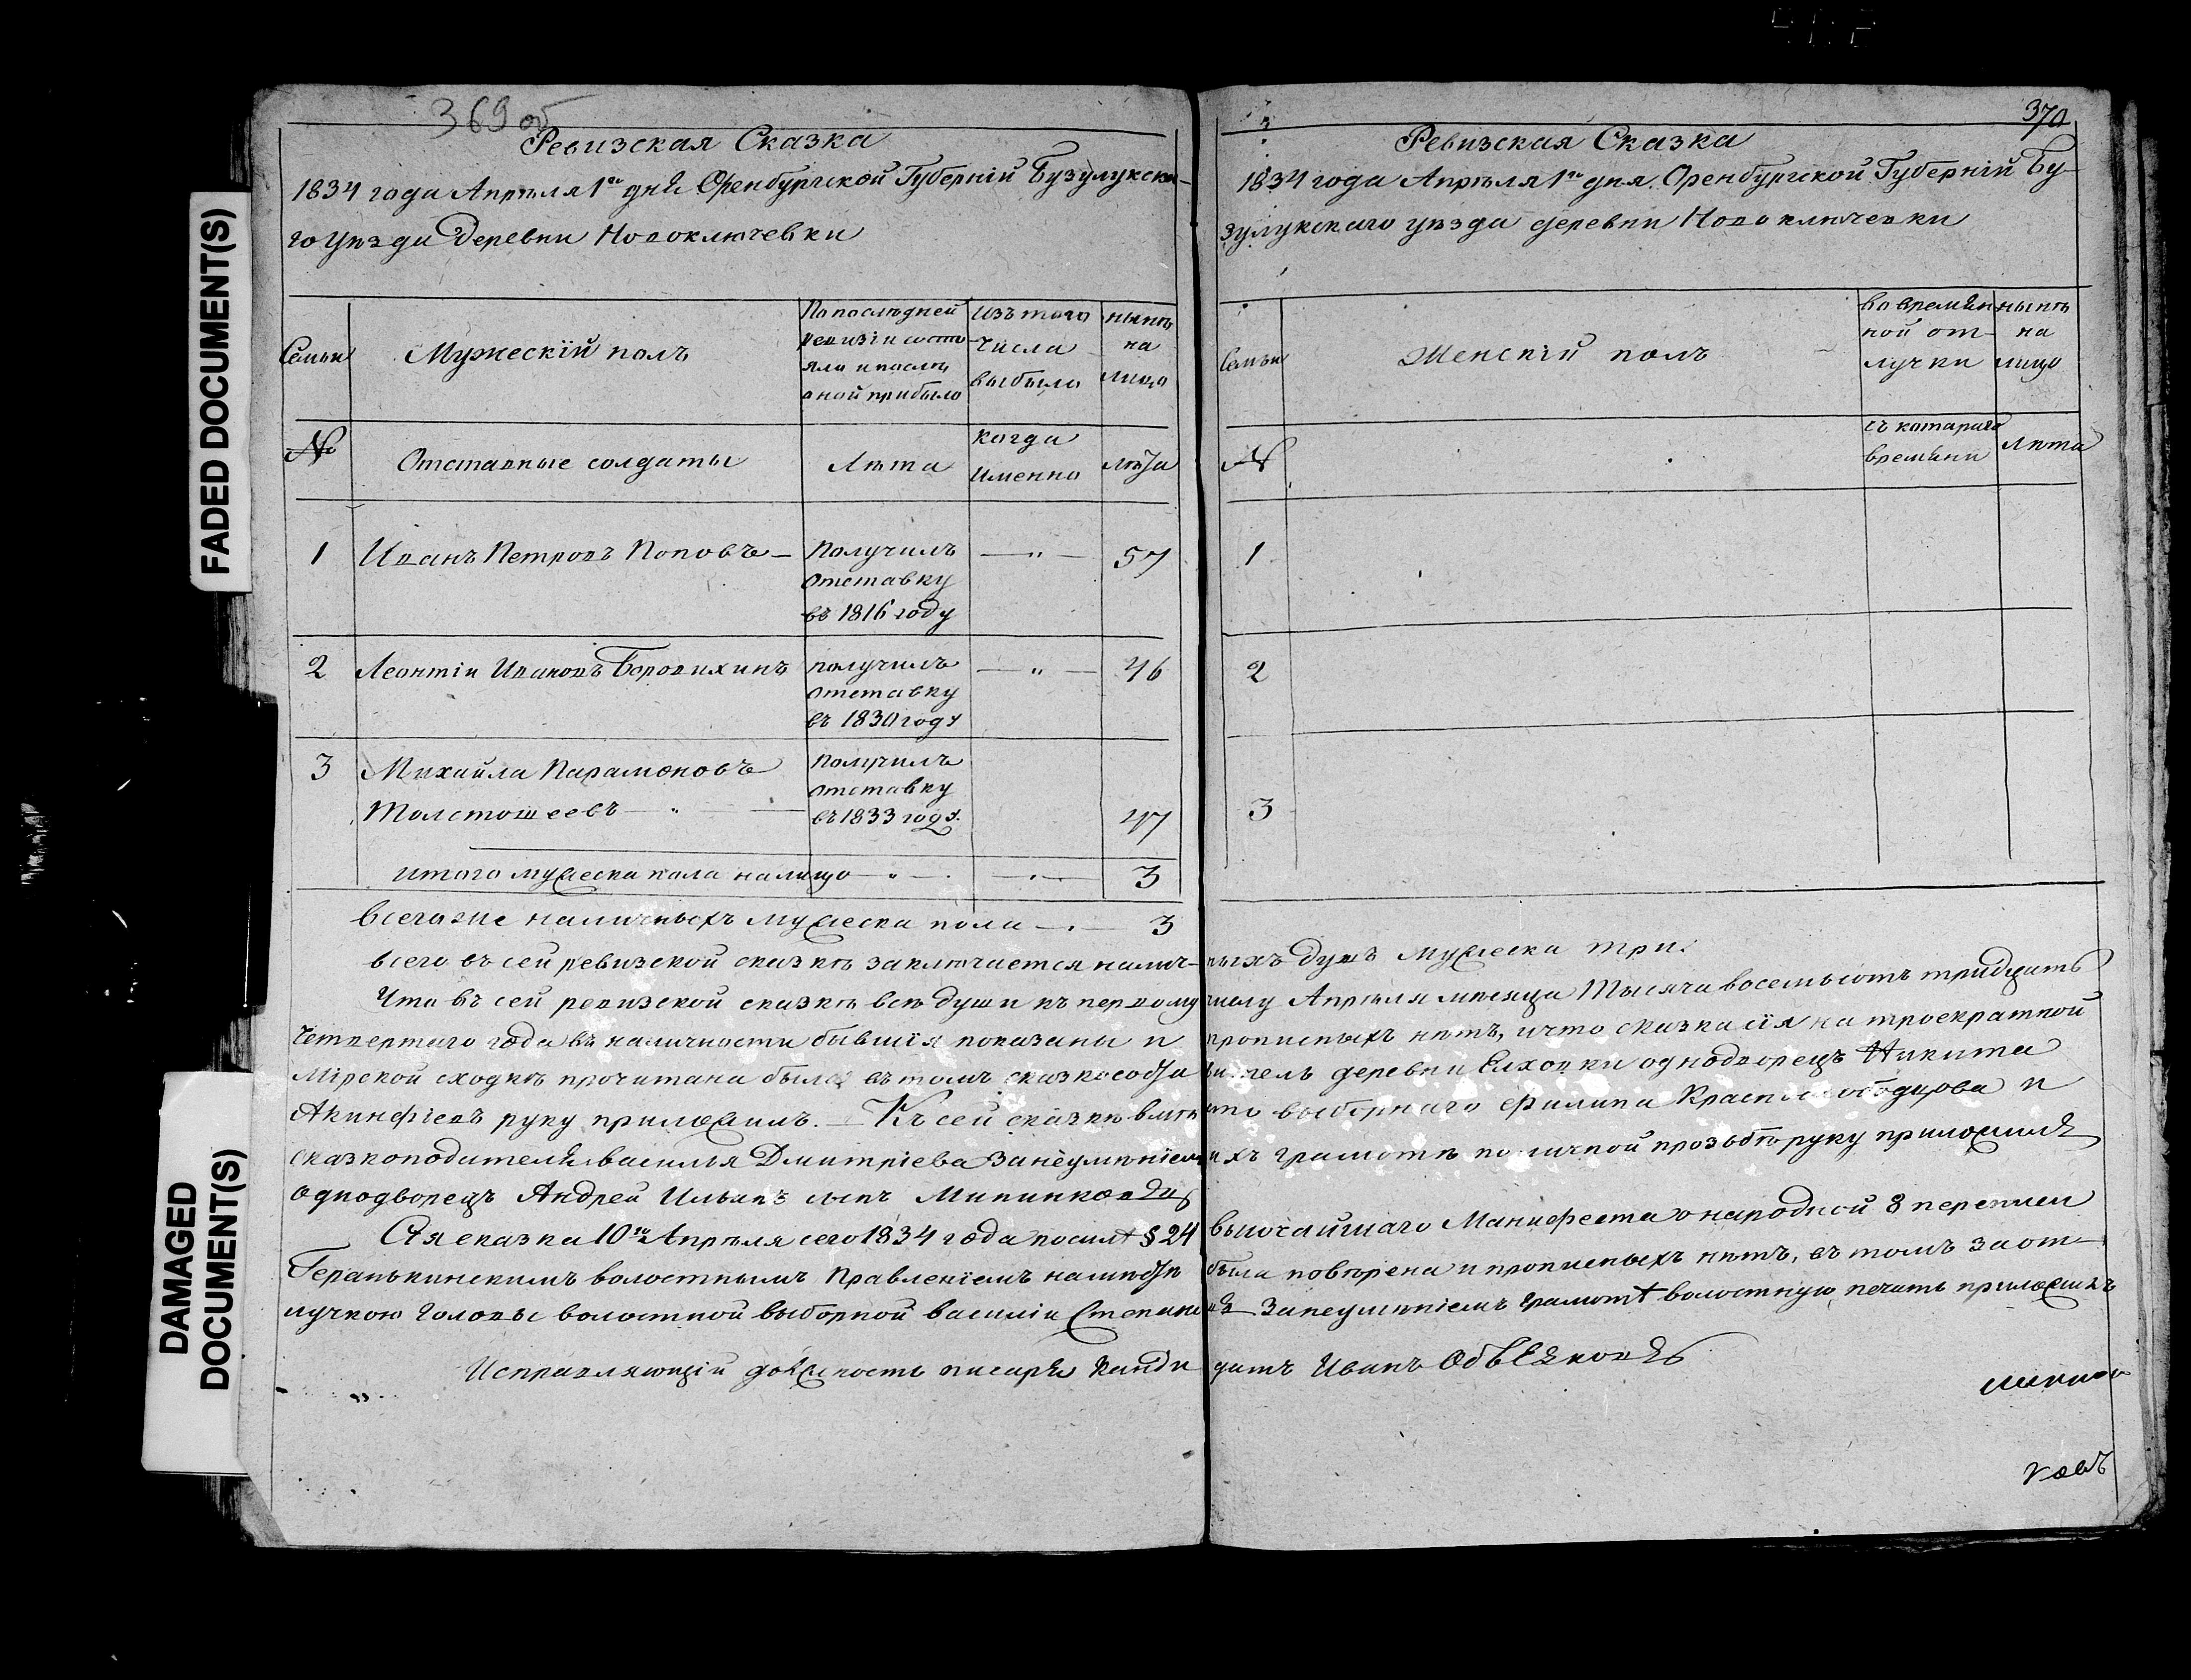 FADED DOCUMENT(S)
DAMAGED
DOCUMENT(S)
369 об
Ревизская Сказка
1834 года Апрѣля 1го дня Оренбургской Губерніи Бузулукска-
го уѣзда Деревни Новоключевки
Семьи
Мужескій полъ
По послѣдней
ревизіи состо-
яло и послѣ
оной прибыло
Изъ того
числа
выбыло
нынѣ
на
лицо
№
Отставные солдаты
Лѣта
когда
именно
лѣта
1 Иванъ Петровъ Поповъ — Получилъ — " — 57
отставку
въ 1816 году
2 Леонтіи Ивановъ Боровихинъ получилъ — " — 46
отставку
въ 1830 году
3 Михайла Парамоновъ Получилъ
отставку
Толстошеевъ — " — въ 1833 году. 47
итого мужеска пола налицо — " — 3
Всего же наличныхъ мужеска пола — 3
370
Ревизская Сказка
1834 года Апрѣля 1го дня Оренбургской Губерніи Бу-
зулукскаго уѣзда деревни Новоключевки
Семьи
Женскій полъ
во времян-
ной от-
лучки
нынѣ
на
лицо
№
съ котараго
времяни
Лѣта
1
2
3
всего въ сей ревизской сказкѣ заключается налич-ныхъ душъ мужеска три.
Что въ сей ревизской сказкѣ всѣ души къ первому числу Апрѣля мѣсяца Тысяча восемьсотъ тридцать
четвертаго года въ наличности бывшія показаны и прописныхъ нѣтъ, и что сказка сія на троекратной
Мірской сходкѣ прочитана была въ томъ сказкосоставитель деревни Елховки однодворецъ Никита
Акинфіевъ руку приложилъ. — Къ сей сказкѣ вмѣсто выборнаго Филипа Краснослободцова и
сказкоподателя василья Дмитріева за неумѣніемъ ихъ грамотѣ по личной прозьбѣ руку приложилъ
однодворецъ Андрей Ильинъ сынъ
Сія сказка 10го Апрѣля сего 1834 года по силѣ § 24 высочайшаго Манифеста о народной 8 переписи
волостнымъ Правленіемъ была повѣрена и прописныхъ нѣтъ, въ томъ за от-
лучкою Головы волостной выборной василіи за неумѣніемъ грамотѣ волостную печать приложилъ
Исправляющіи должность писаря Кандидатъ Иванъ